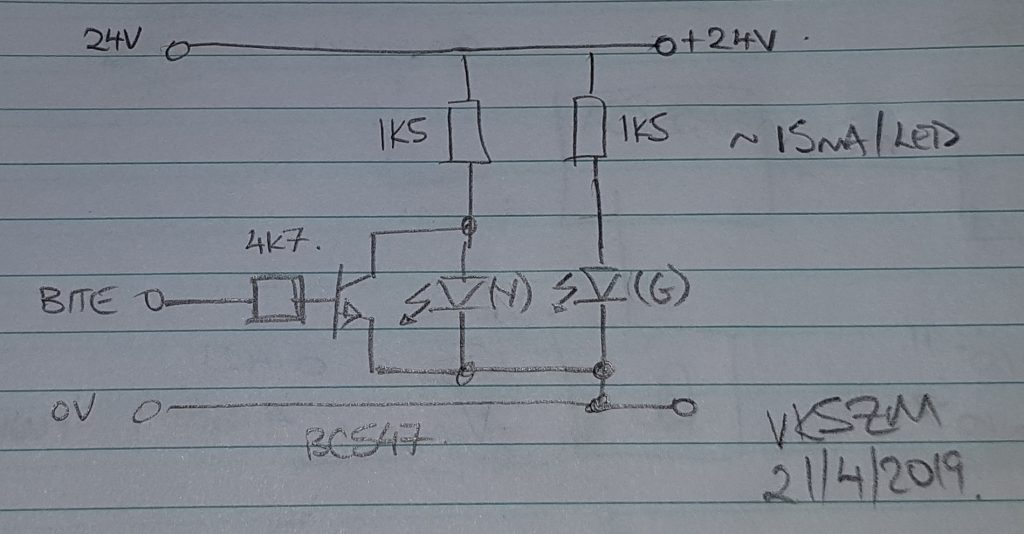 24V +24V
1K5 1K5 ~15mA/LED
4K7.
BITE (Y) (G)
0V
BC547
VK5ZM
21/4/2019.